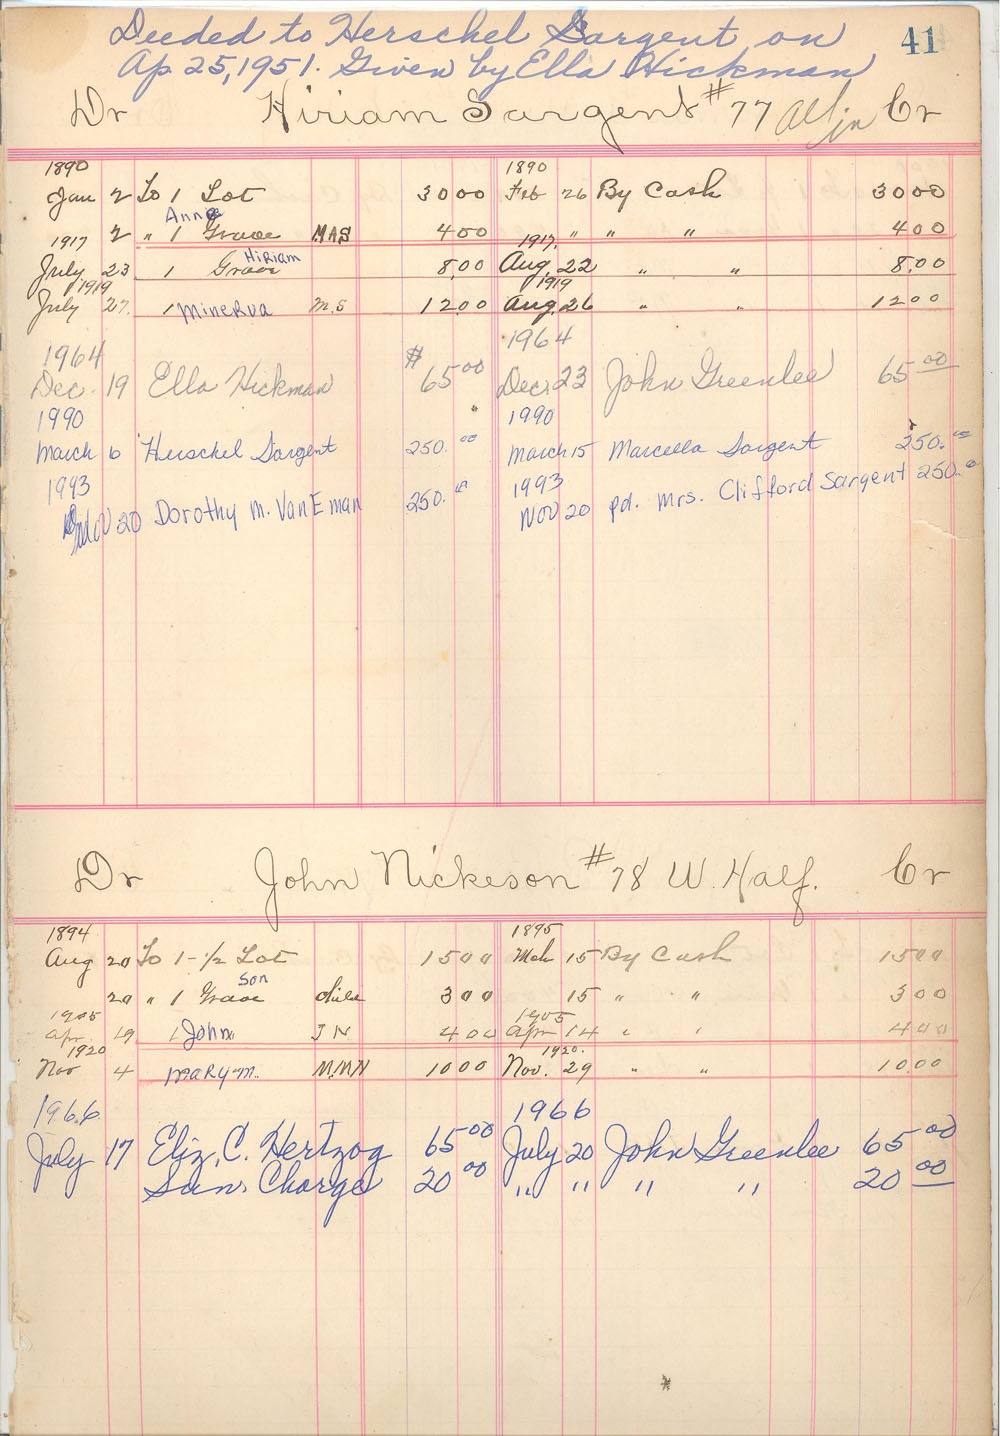 Deeded to Herschel Sargent on
41
Ap. 25, 1951. Given by Ella Hickman
Dr Hiriam Sargent #77 All in Cr
1890 1890
Jan 2 To 1 Lot 3000 Feb 26 By Cash 3000
Anna
2 " 1 Grave MAS 400 " " " 400
1917 1917.
Hiriam
July 23 1 Grave 8,00 Aug. 22 " " 8,00
1919 1919
July 27. 1 Minerva M.S 1200 Aug. 26 " " 1200
1964 1964
Dec. 19 Ella Hickman $65.00 Dec. 23 John Greenlee 65.00
1990 1990
March 6 Herschel Sargent 250.00 March 15 Marcella Sargent 250.00
1993 1993
Nov 20 Dorothy M. VanEman 250.00 Nov 20 pd. Mrs. Clifford Sargent 250.00
Dr John Nickeson #78 W. Half. Cr
1894 1895
Aug 20 To 1-1/2 Lot 1500 Mch 15 By Cash 1500
Son
20 " 1 Grave 300 15 " " 300
1905 1905
Apr 19 1 John J N 400 Apr 14 " " 400
1920 1920.
Nov 4 Mary M. M.MN 1000 Nov. 29 " " 10.00
1966 1966
July 17 Eliz. C. Hertzog 65.00 July 20 John Greenlee 65.00
Sun. Charge 20.00 " " " " 20.00